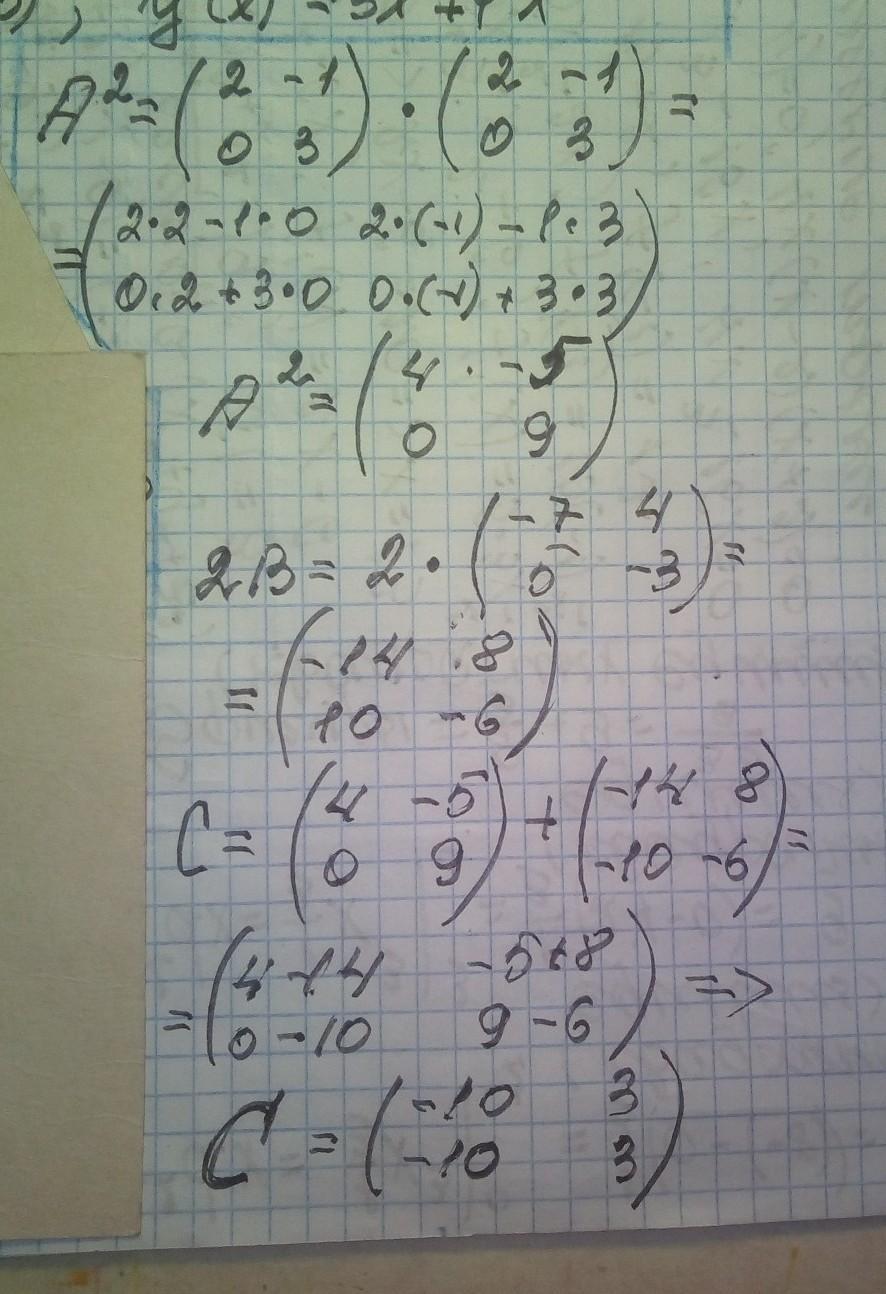 A² = ( 2 -1 ) · ( 2 -1 ) =
( 0 3 ) ( 0 3 )
= ( 2·2 - 1·0 2·(-1) - 1·3 )
( 0·2 + 3·0 0·(-1) + 3·3 )
A² = ( 4 -5 )
( 0 9 )
2B = 2 · ( -7 4 ) =
( 5 -3 )
= ( -14 8 )
( 10 -6 )
C = ( 4 -5 ) + ( -14 8 ) =
( 0 9 ) ( -10 -6 )
= ( 4-14 -5+8 ) =>
( 0-10 9-6 )
C = ( -10 3 )
( -10 3 )